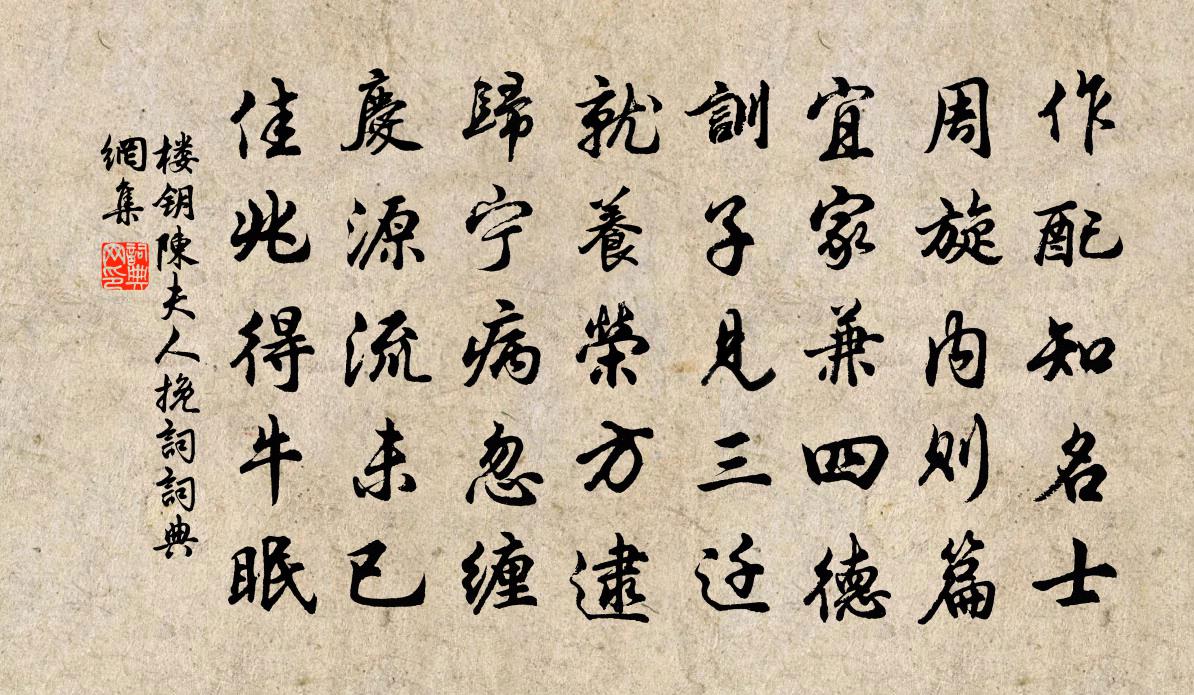 作配知名士
周旋内则篇
宜家兼四德
訓子見三迁
就養榮方逮
歸宁病忽缠
慶源流未已
佳兆得牛眠
楼钥陳夫人挽詞詞典
網集
詞典
网印